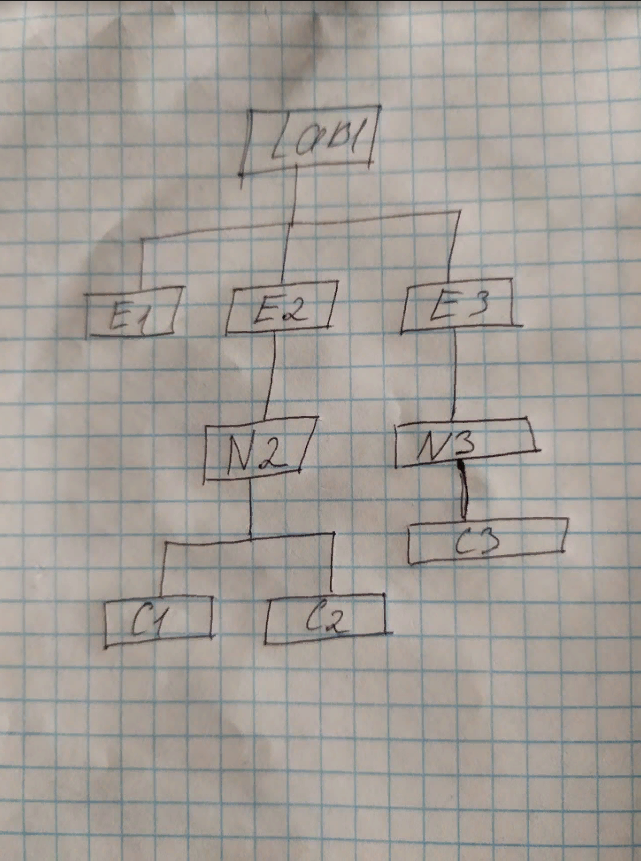 Lab1
E1 E2 E3
N2 N3
C3
C1 C2